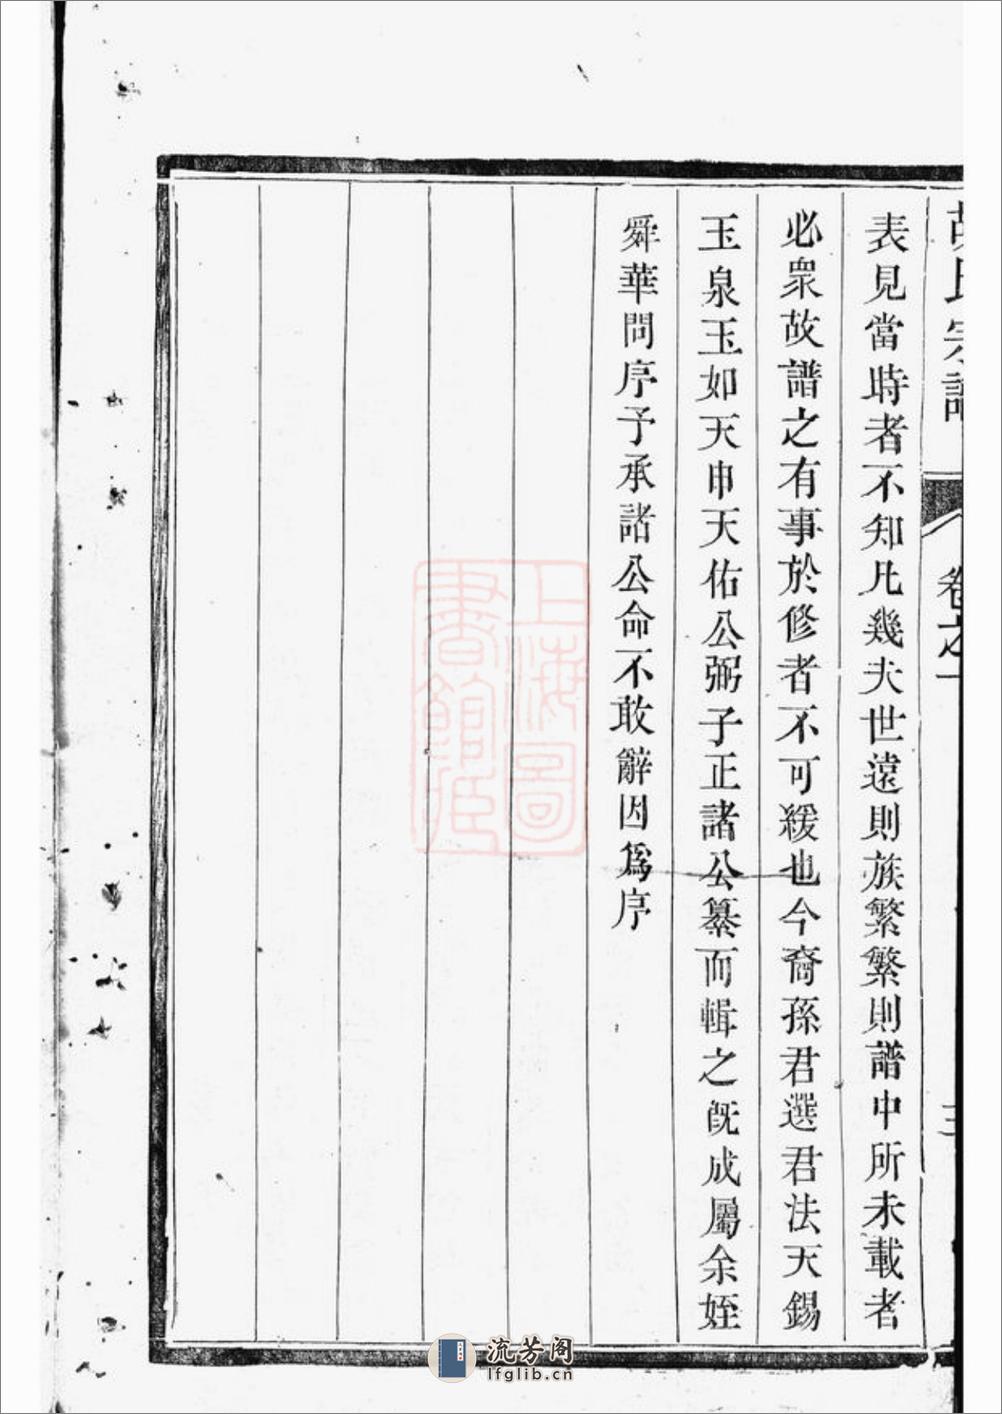 胡氏宗譜
卷之一
表見當時者不知凡幾夫世遠則族繁繁則譜中所未載者
必衆故譜之有事於修者不可緩也今裔孫君選君法天錫
玉泉玉如天申天佑公弼子正諸公纂而輯之既成屬余姪
舜華問序予承諸公命不敢辭因爲序
上海圖
書館藏
流芳阁
lfglib.cn